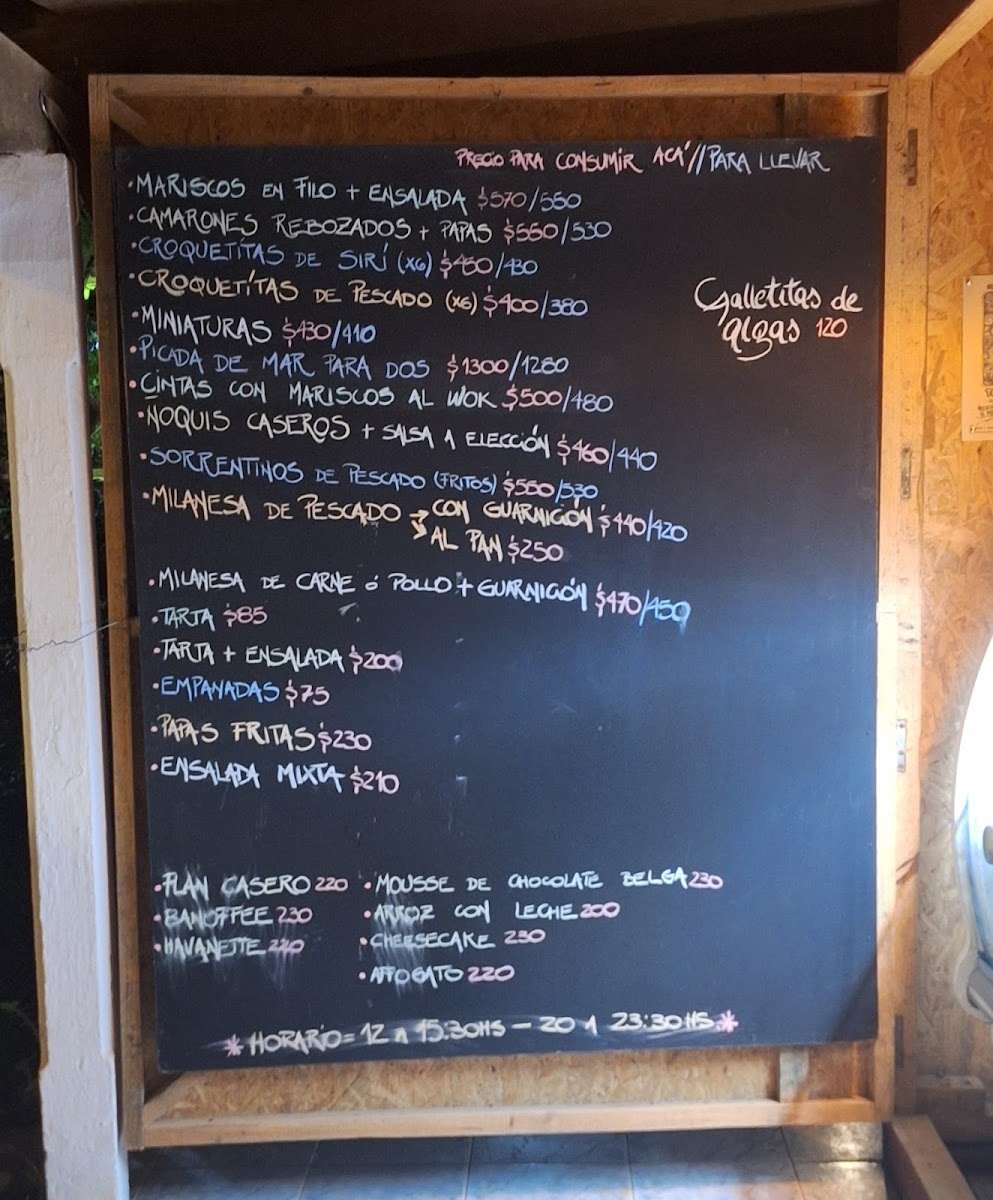 PRECIO PARA CONSUMIR ACÁ//PARA LLEVAR
·MARISCOS EN FILO + ENSALADA $570/550
·CAMARONES REBOZADOS + PAPAS $550/530
·CROQUETITAS DE SIRÍ (X6) $450/430
·CROQUETÍTAS DE PESCADO (X6) $400/380
Galletitas de
algas 120
·MINIATURAS $430/410
·PICADA DE MAR PARA DOS $1300/1280
·CINTAS CON MARISCOS AL WOK $500/480
·ÑOQUIS CASEROS + SALSA A ELECCIÓN $460/440
·SORRENTINOS DE PESCADO (FRITOS) $550/530
·MILANESA DE PESCADO → CON GUARNICIÓN $440/420
↘ AL PAN $250
·MILANESA DE CARNE ó POLLO + GUARNICIÓN $470/450
·TARTA $85
·TARTA + ENSALADA $200
·EMPANADAS $75
·PAPAS FRITAS $230
·ENSALADA MIXTA $210
·FLAN CASERO 220 ·MOUSSE DE CHOCOLATE BELGA 230
·BANOFFEE 230 ·ARROZ CON LECHE 200
·HAVANETTE 220 ·CHEESECAKE 230
·AFFOGATO 220
*HORARIO= 12 A 15:30HS - 20 A 23:30HS.*